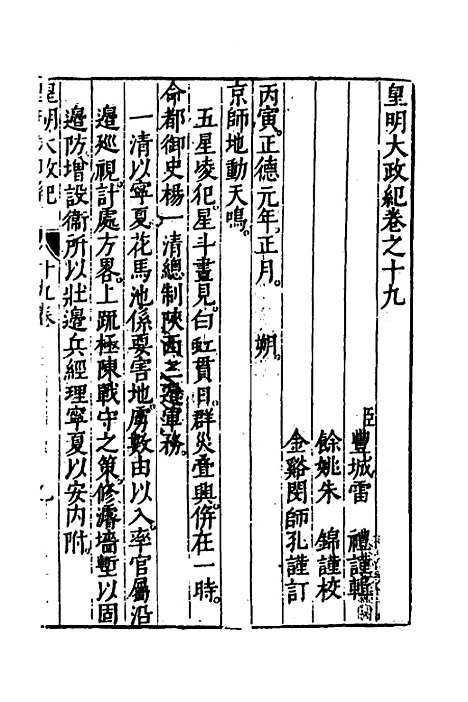 皇明大政紀卷之十九
臣豐城雷禮謹輯
餘姚朱錦謹校
金谿閔師孔謹訂
丙寅正德元年正月朔
京師地動天鳴
五星凌犯星斗晝見白虹貫日群災疊興併在一時
命都御史楊一清總制陝西三邊軍務
一清以寧夏花馬池係要害地虜數由以入率官屬沿
邊廵視計處方畧上疏極陳戰守之策修濬墻塹以固
邊防增設衞所以壯邊兵經理寧夏以安內附
皇明大政紀 十九卷